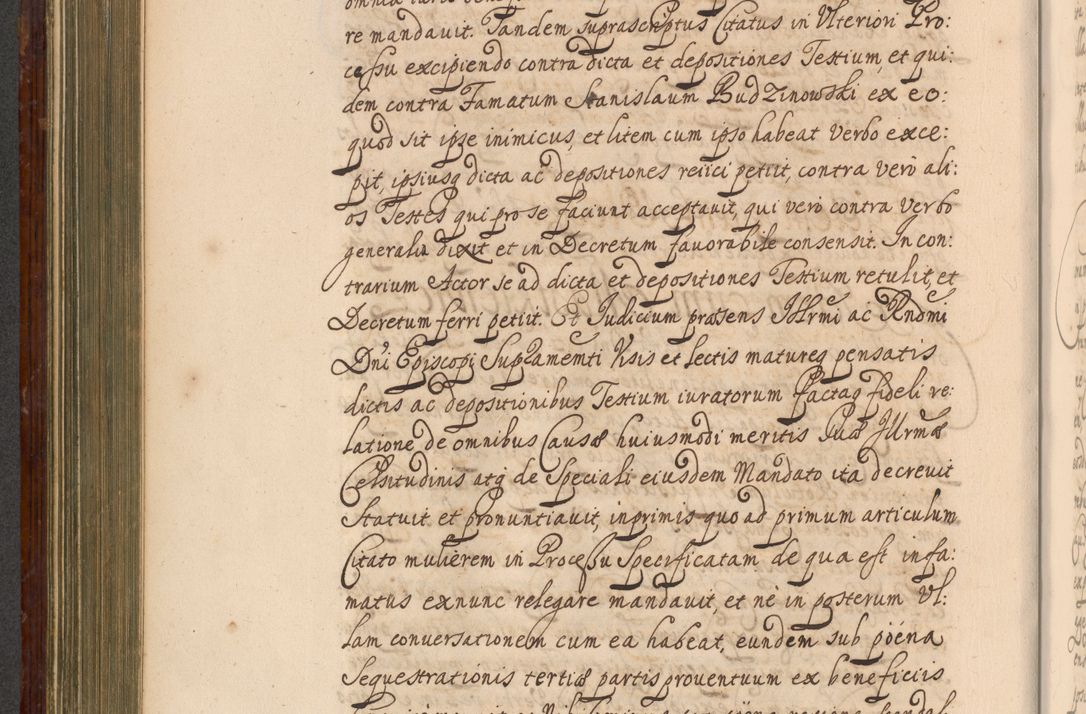 re mandauit. Tandem suprascriptus Citatus in Ulteriori Pro:
cessu excipiendo contra dicta et depositiones Testium, et qui:
dem contra Famatum Stanislaum Budzinowski ex eo:
quod sit ipse inimicus, et litem cum ipso habeat verbo exce:
pit, ipsiusq dicta ac depositiones reiici petiit, contra verò ali:
os Testes qui pro se faciunt acceptauit, qui verò contra verbo
generali dixit et in Decretum fauorabile consensit. In con:
trarium Actor se ad dicta et depositiones Testium retulit, et
Decretum ferri petiit. Et Judicium præsens Illrmi ac Rndmi
Dni Episcopi Supramemti Visis et lectis matureq pensatis
dictis ac depositionibus Testium iuratorum factaq fideli re:
latione de omnibus Causæ huiusmodi meritis Suæ Illrmæ
Celsitudinis atq de Speciali eiusdem Mandato ita decreuit
Statuit et pronuntiauit, inprimis quo ad primum articulum
Citato mulierem in Processu Specificatam de qua est infa:
matus exnunc relegare mandauit, et nè in posterum Vl:
lam conversationem cum ea habeat, eundem sub pöena
Sequestrationis tertiæ partis proventuum ex beneficiis